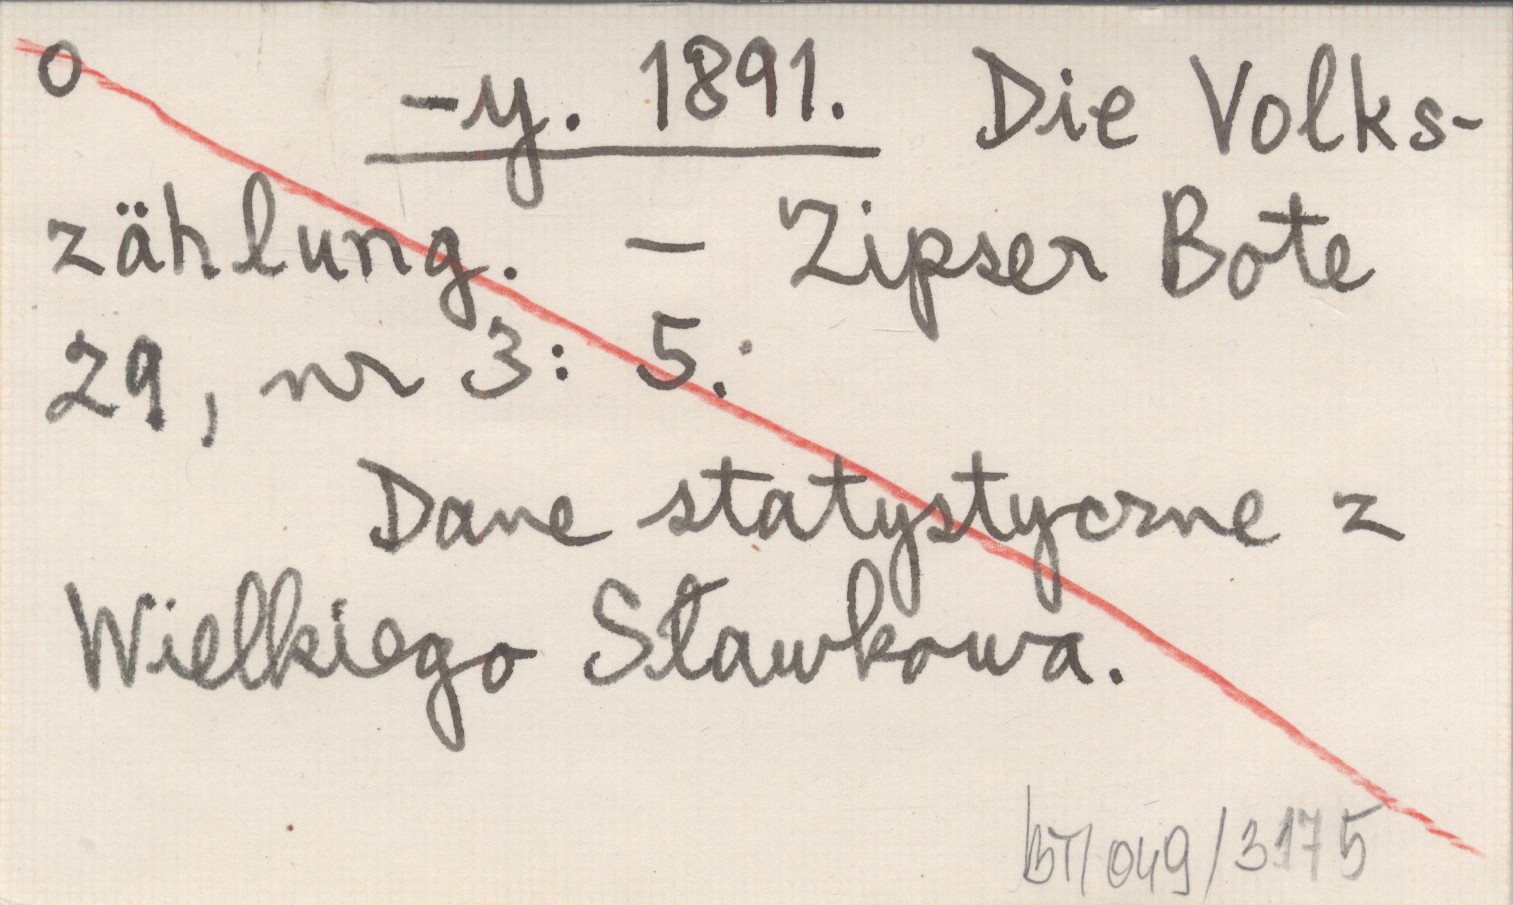 o -y. 1891. Die Volks-
zählung. — Zipser Bote
29, nr 3: 5.
Dane statystyczne z
Wielkiego Sławkowa.
BT/049/3175